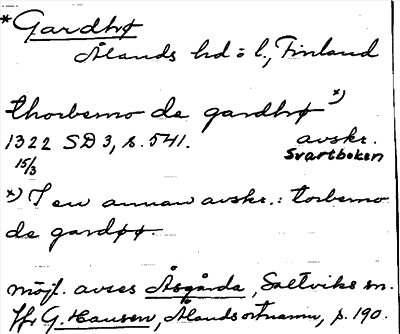 *Gardhø
Ålands hd o l., Finland
thorbemo de gardhø *)
1322 SD 3, s. 541. avskr.
15/3 Svartboken
*) I en annan avskr.: torbemo
de gardøø.
möjl. avses Åsgårda, Saltviks sn.
Jfr G. Hausen, Ålands ortnamn, p. 190.